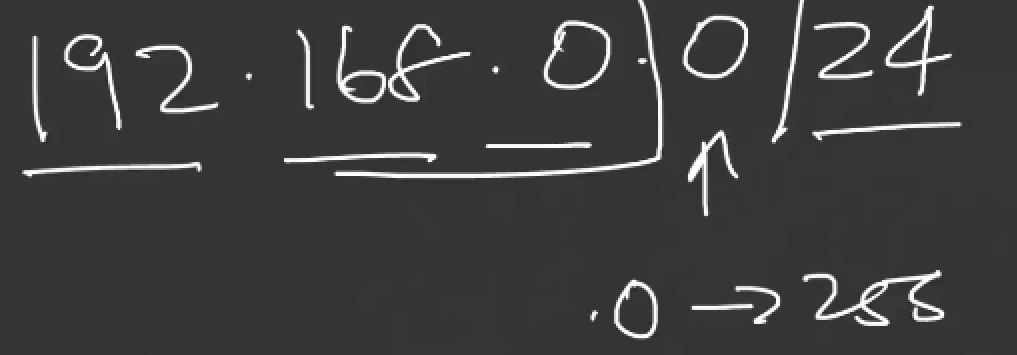 192.168.0.0/24
.0 → 255